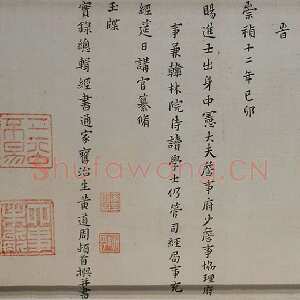 晋
崇禎十二年己卯
賜進士出身中憲大夫詹事府少詹事協理府
事兼翰林院侍讀學士仍管司經局事充
經筵日講官纂脩
玉牒
實錄總輯經書通家舊治生黄道周頓首撰并書
Shufawang.CN